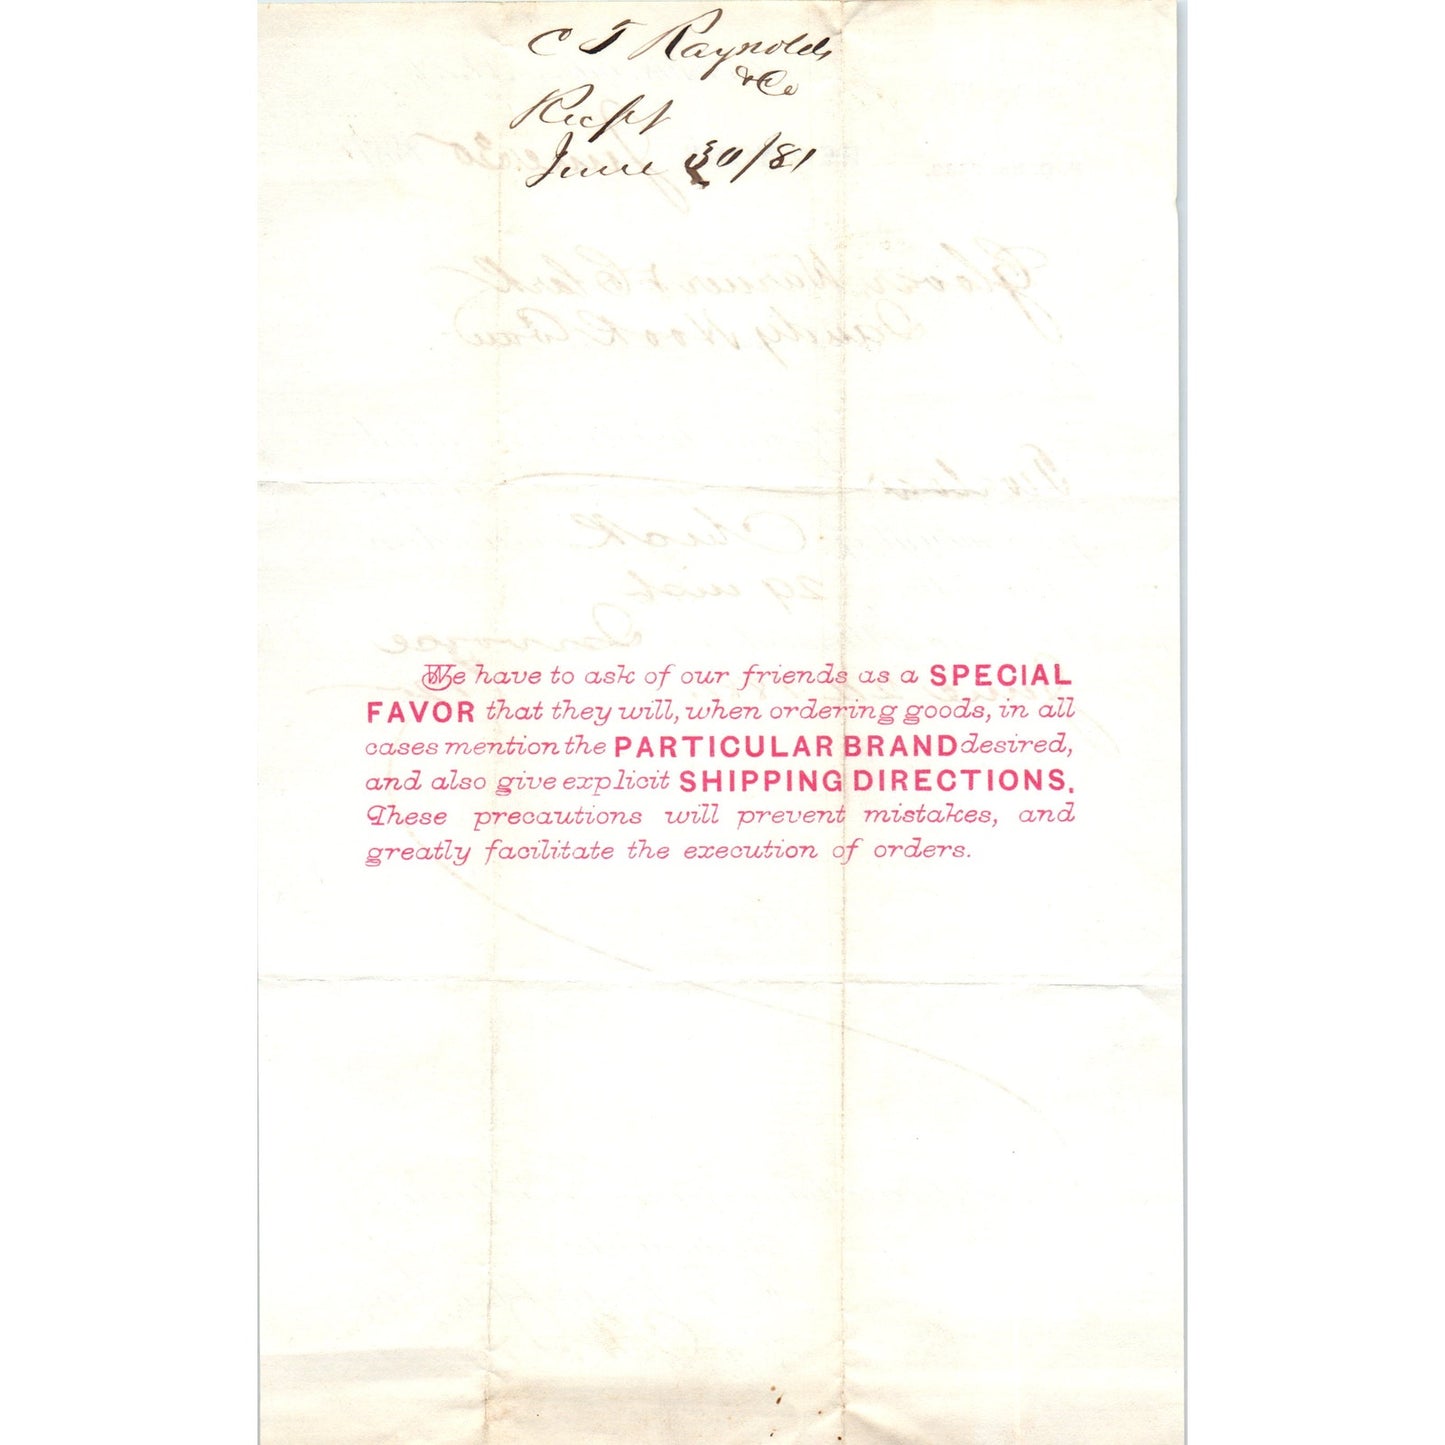 C T Raynolds
& Co
Recpt
June 30/81
We have to ask of our friends as a SPECIAL
FAVOR that they will, when ordering goods, in all
cases mention the PARTICULAR BRAND desired,
and also give explicit SHIPPING DIRECTIONS.
These precautions will prevent mistakes, and
greatly facilitate the execution of orders.